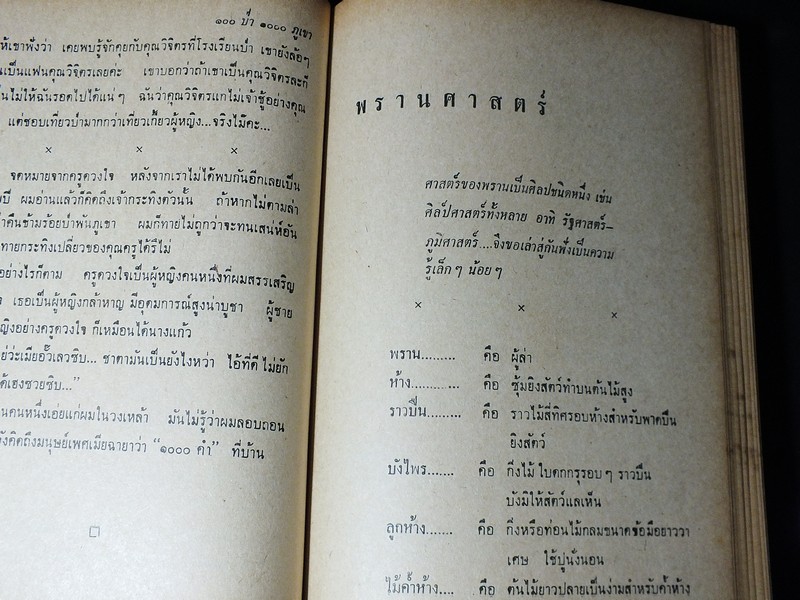 ๑๐๐ ป่า ๑๐๐๐ ภูเขา
ให้เขาฟังว่า เคยพบรู้จักคุยกับคุณวิจิตรที่โรงเรียนป่า เขายังล้อๆ
เป็นแฟนคุณวิจิตรเลยค่ะ เขาบอกว่าถ้าเขาเป็นคุณวิจิตรละก็
ไม่ให้ฉันรอดไปได้แน่ๆ ฉันว่าคุณวิจิตรแกไม่เจ้าชู้อย่างคุณ
แต่ชอบเที่ยวป่ามากกว่าเที่ยวเกี้ยวผู้หญิง...จริงไม๊คะ...
× × ×
จดหมายจากครูดวงใจ หลังจากเราไม่ได้พบกันอีกเลยเป็น
ผมอ่านแล้วก็คิดถึงเจ้ากระทิงตัวนั้น ถ้าหากไม่ตามล่า
คืนข้ามร้อยป่าพันภูเขา ผมก็ทายไม่ถูกว่าจะทนเสน่ห์อัน
ทายกระทิงเปลี่ยวของคุณครูได้รึไม่
อย่างไรก็ตาม ครูดวงใจเป็นผู้หญิงคนหนึ่งที่ผมสรรเสริญ
เธอเป็นผู้หญิงกล้าหาญ มีอุดมการณ์สูงน่าบูชา ผู้ชาย
หญิงอย่างครูดวงใจ ก็เหมือนได้นางแก้ว
ว่ะเมียอั๊วเลวซิบ... ชาตามันเป็นยังไงหว่า ไอ้ที่ดีไม่ยัก
ได้เฮงซวยซิบ..."
คนหนึ่งเอ่ยแก่ผมในวงเหล้า มันไม่รู้ว่าผมลอบถอน
คิดถึงมนุษย์เพศเมียฉายาว่า "๑๐๐๐ ค่ำ" ที่บ้าน
□
พรานศาสตร์
ศาสตร์ของพรานเป็นศิลปชนิดหนึ่ง เช่น
ศิลป์ศาสตร์ทั้งหลาย อาทิ รัฐศาสตร์–
ภูมิศาสตร์....จึงขอเล่าสู่กันฟังเป็นความ
รู้เล็กๆ น้อยๆ
× × ×
พราน......... คือ ผู้ล่า
ห้าง............ คือ ซุ้มยิงสัตว์ทำบนต้นไม้สูง
ราวปืน......... คือ ราวไม้สี่ทิศรอบห้างสำหรับพาดปืน
ยิงสัตว์
บังไพร....... คือ กิ่งไม้ ใบดกกรุรอบๆ ราวปืน
บังมิให้สัตว์แลเห็น
ลูกห้าง....... คือ กิ่งหรือท่อนไม้กลมขนาดข้อมือยาววา
เศษ ใช้ปูนั่งนอน
ไม้ค้ำห้าง.... คือ ต้นไม้ยาวปลายเป็นง่ามสำหรับค้ำห้าง